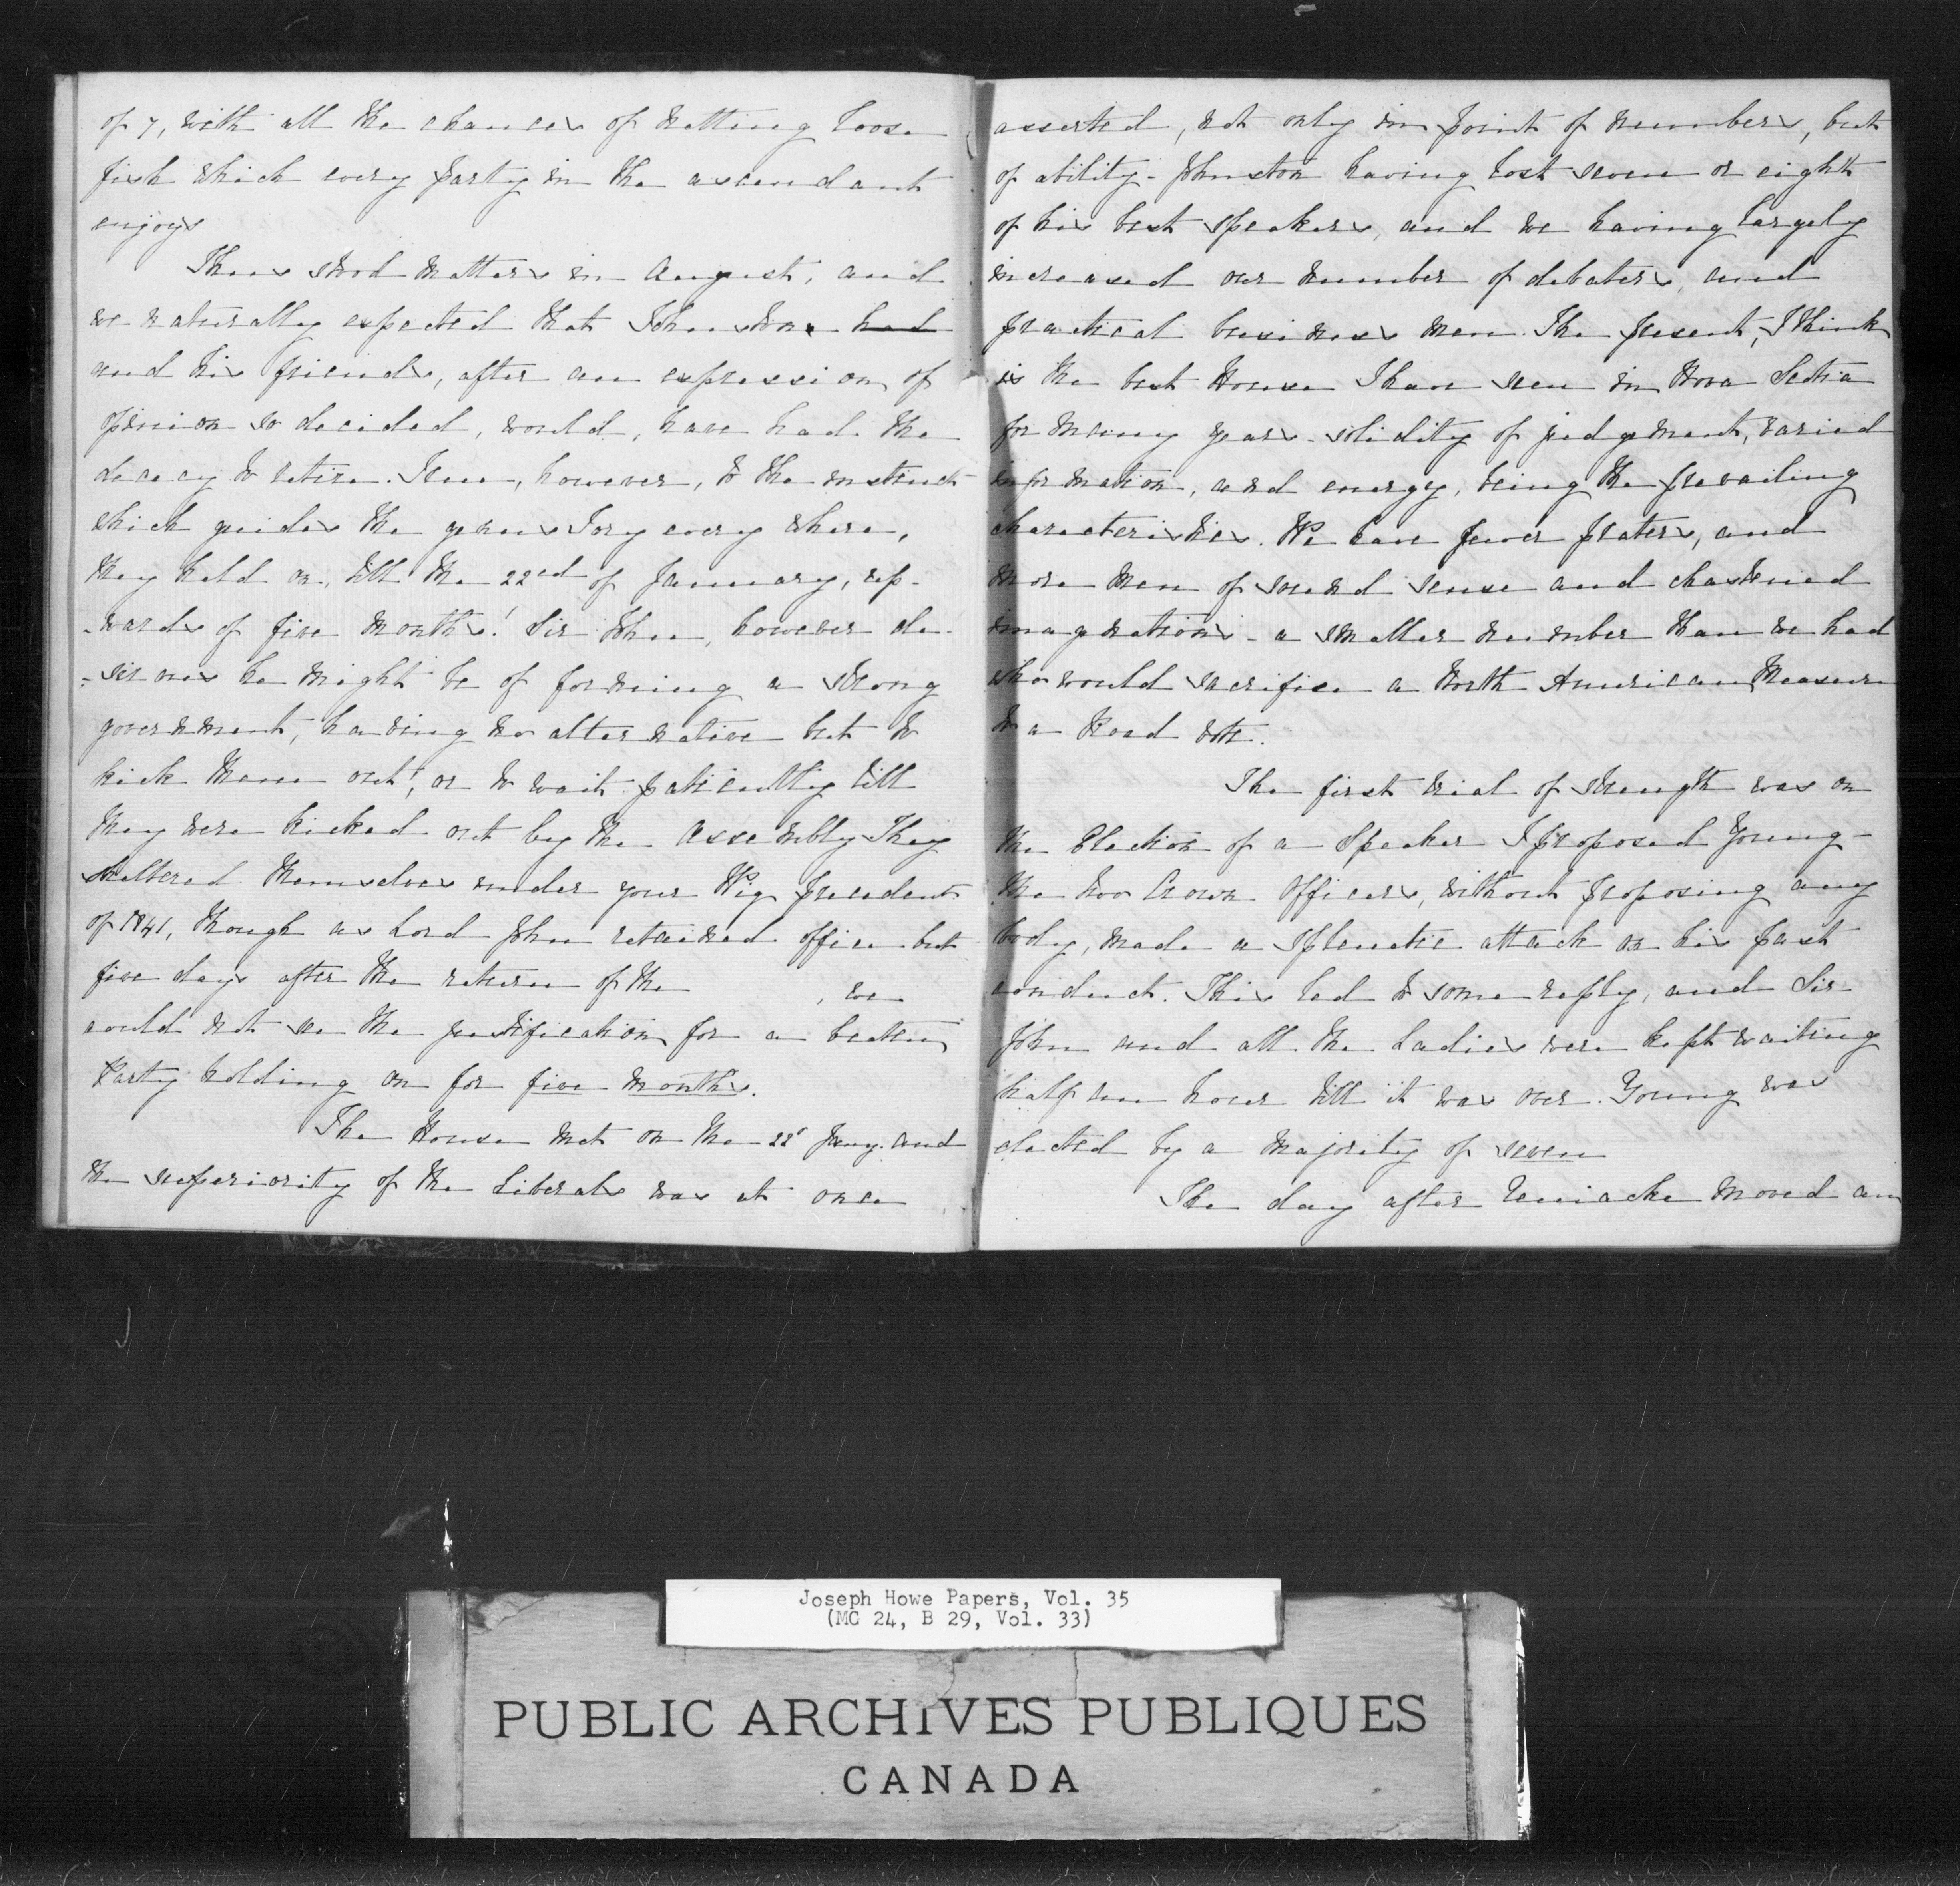 of 7, with all the chances of netting loose
fish which every party in the ascendant
enjoys
Thus stood matters in August, and
we naturally expected that Johnston had
and his friends, after an expression of
opinion so decided, would, have had the
decency to retire. True, however, to the instinct
which guides the genus Tory every where,
they held on, till the 22nd of January, up-
-wards of five months! Sir John, however de-
-sirous he might be of forming a strong
government, having no alternative but to
kick them out, or to wait patiently till
they were kicked out by the Assembly They
sheltered themselves under your Wig precedent
of 1841, though as Lord John retained office but
five days after the return of the , we
could not see the justification for a beaten
Party holding on for five months.
The House met on the 22d Jany. and
the superiority of the Liberals was at once
asserted, not only in point of numbers, but
of ability - Johnston having lost seven or eight
of his best speakers, and we having largely
increased our number of debaters, and
practical business men. The present, I think
is the best House I have seen in Nova Scotia
for many years - solidity of judgement, varied
information, and energy, being the prevailing
characteristics. We have fewer praters, and
more men of sound sense and chastened
imaginations - a smaller number than we had
who would sacrifice a North American Measure
to a Road vote.
The first trial of strength was on
the Election of a Speaker I proposed Young -
the two Crown Officers, without proposing any
body, made a splenetic attack on his past
conduct. This led to some reply, and Sir
John and all the Ladies were kept waiting
half an hour till it was over. Young was
elected by a majority of seven
The day after Uniacke moved an
Joseph Howe Papers, Vol. 35
(MG 24, B 29, Vol. 33)
PUBLIC ARCHIVES PUBLIQUES
CANADA